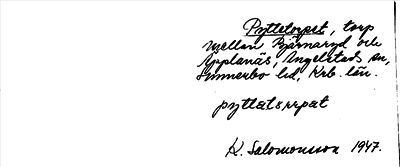 Pyttetorpet, torp
mellan Bjärnaryd och
Applanäs, Angelstads sn,
Sunnerbo hd, Krb. län.
pyttatɛrpat
K. Salomonsson 1947.